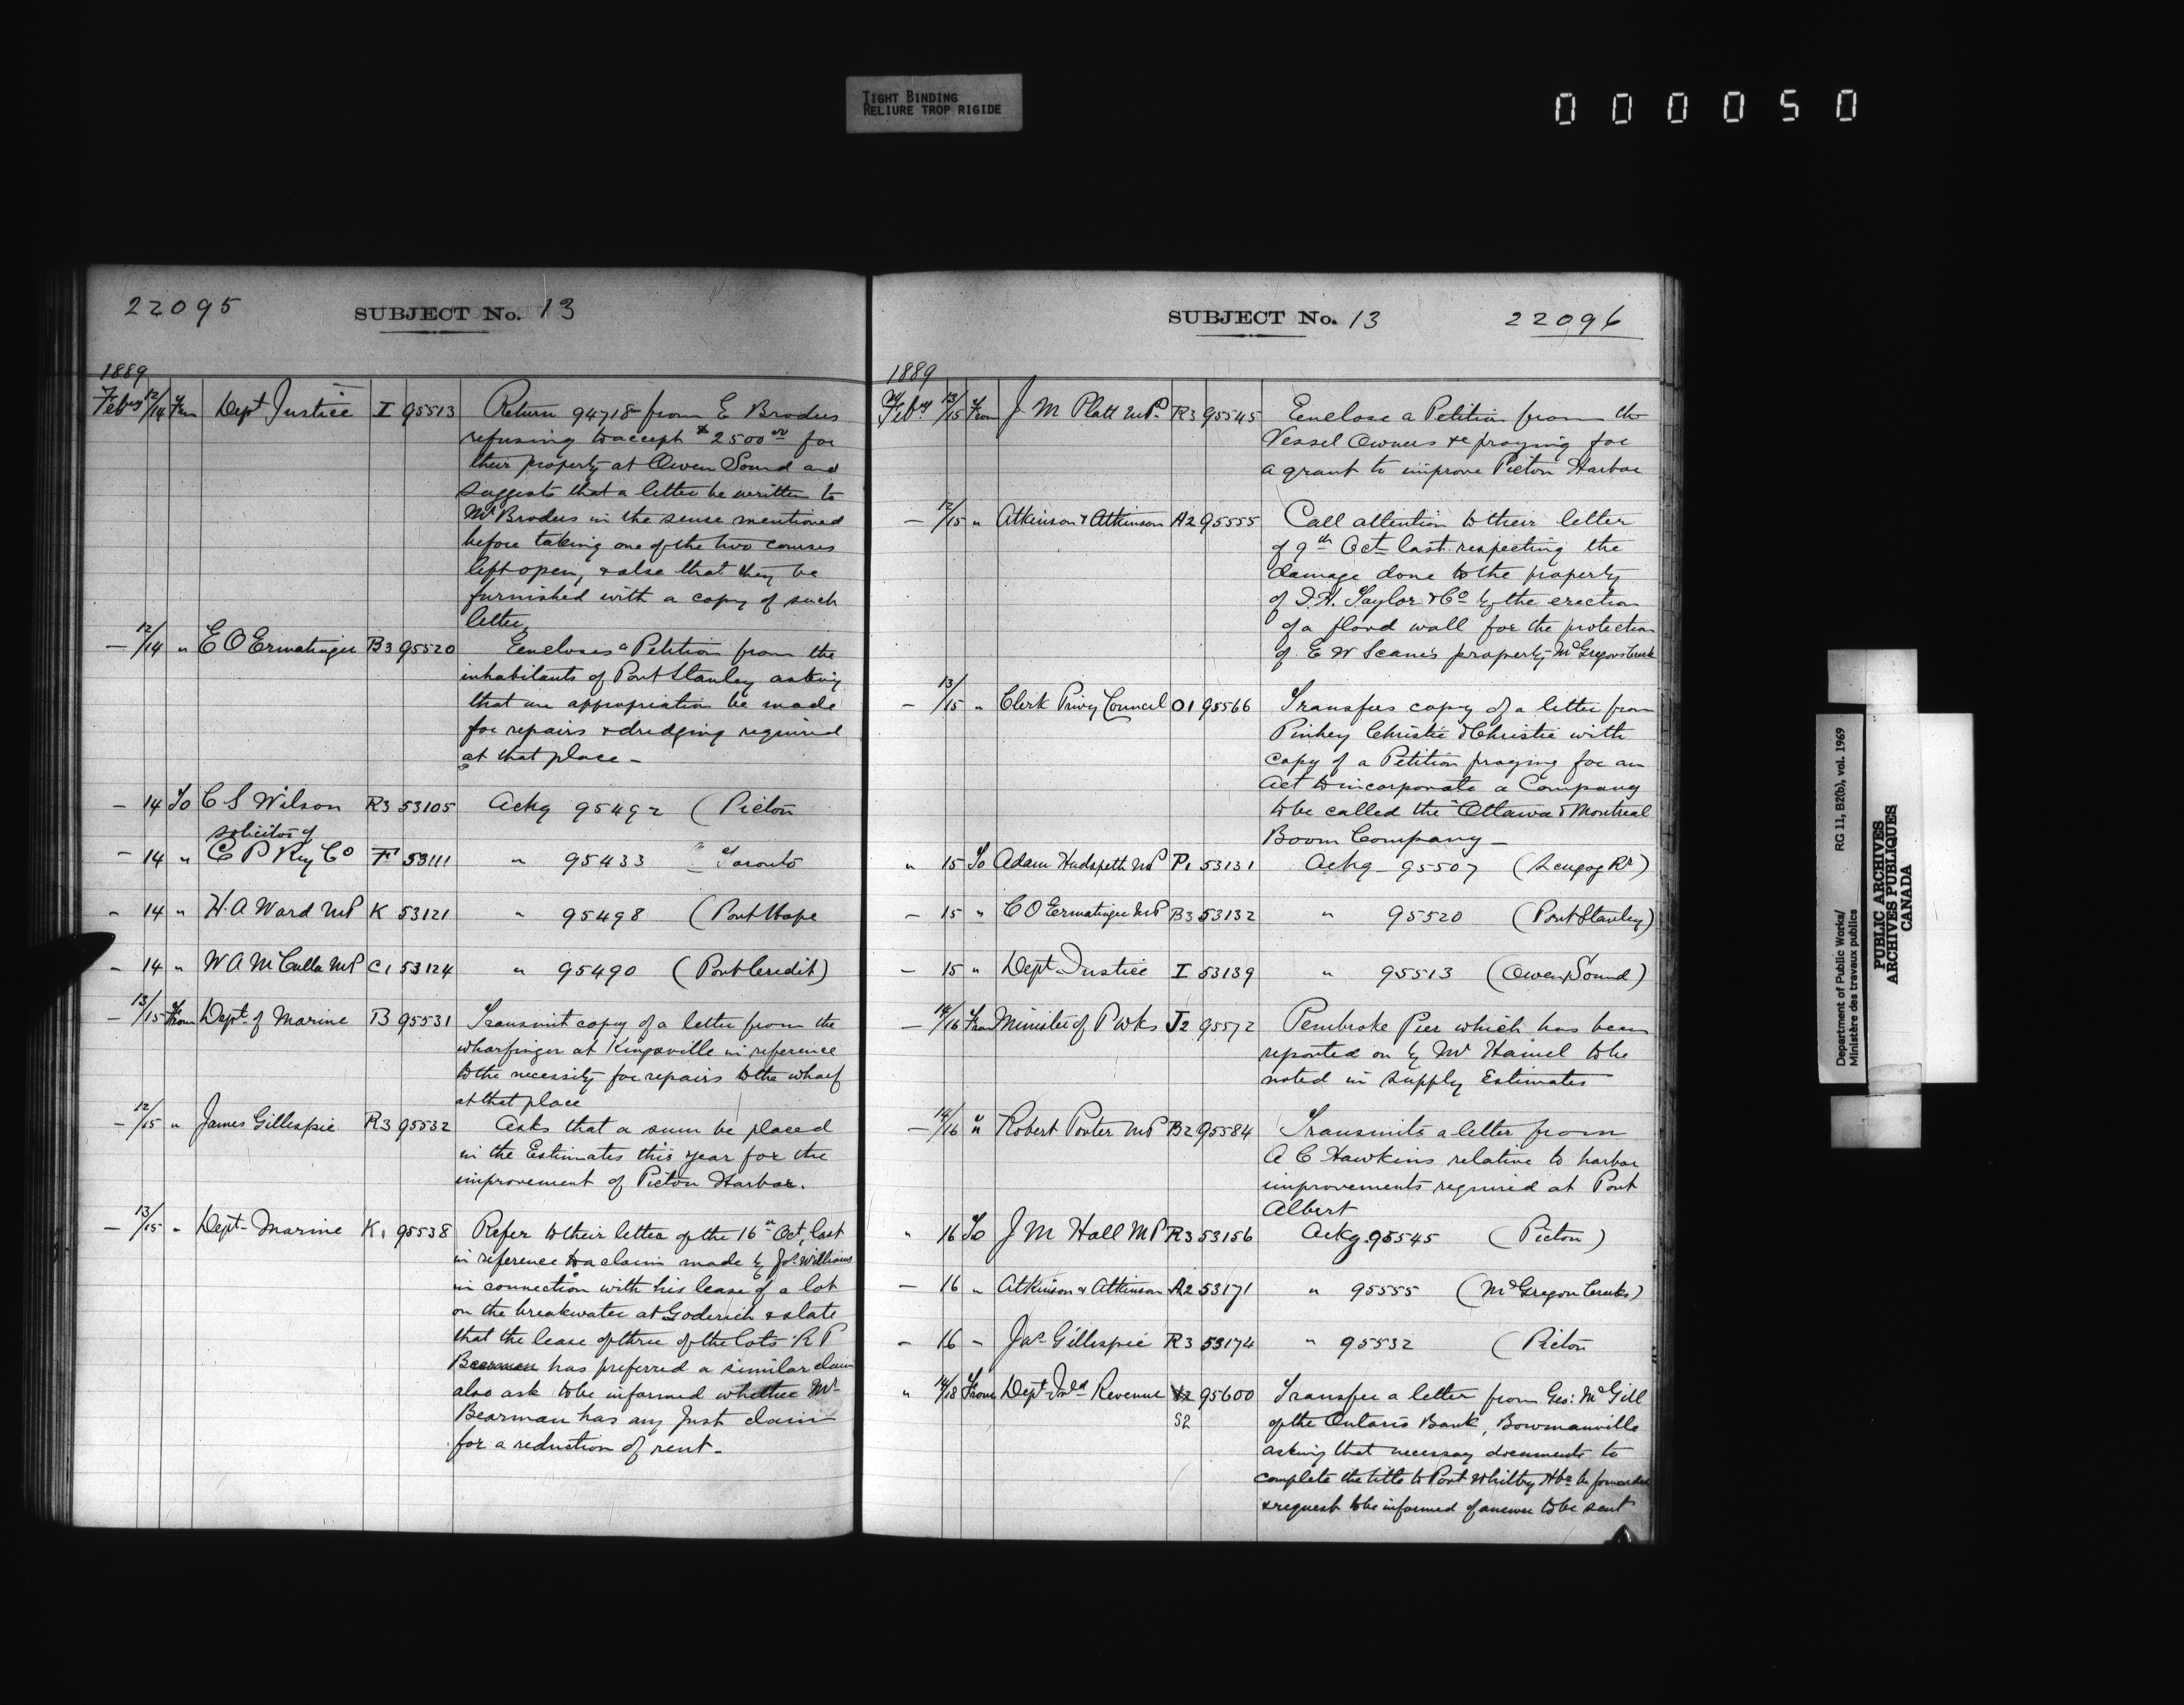 TIGHT BINDING
RELIURE TROP RIGIDE
000050
22095
SUBJECT No. 13
1889
Feby 12/14 From Dept Justice I 95513 Return 94718 from E Broders
refusing to accept $2500 00 for
their property at Owen Sound and
suggests that a letter be written to
Mr Broders in the sense mentioned
before taking one of the two courses
left open, & also that they be
furnished with a copy of such
letter,
— 12/14 " E O Ermatinger B3 95520 Encloses a Petition from the
inhabitants of Port Stanley asking
that an appropriation be made
for repairs & dredging required
at that place —
— 14 To C S Wilson R3 53105 Ackg 95492 (Picton
solicitor of
— 14 " C P Ry Co F 53111 " 95433 Toronto
— 14 " H. A Ward MP K 53121 " 95498 (Port Hope
— 14 " W A McCulla MP C1 53124 " 95490 (Port Credit)
— 13/15 From Dept of Marine B 95531 Transmit copy of a letter from the
wharfinger at Kingsville in reference
to the necessity for repairs to the wharf
at that place
— 12/15 " James Gillespie R3 95532 Asks that a sum be placed
in the Estimates this year for the
improvement of Picton Harbor.
— 13/15 " Dept Marine K1 95538 Refer to their letter of the 16th Oct, last
in reference to a claim made by Jos. Williams
in connection with his lease of a lot
on the breakwater at Goderich & state
that the lease of three of the lots R P
Bearman has preferred a similar claim
also ask to be informed whether Mr
Bearman has any just claim
for a reduction of rent —
SUBJECT No. 13
22096
1889
Feby 13/15 From J M Platt MP. R3 95545 Enclose a Petition from the
Vessel Owners &c praying for
a grant to improve Picton Harbor
— 12/15 " Atkinson & Atkinson A2 95555 Call attention to their letter
of 9th Oct last respecting the
damage done to the property
of T. H. Taylor & Co by the erection
of a flood wall for the protection
of E W Scane's property McGregors Creek
— 13/15 " Clerk Privy Council O1 95566 Transfers copy of a letter from
Pinhey Christie & Christie with
copy of a Petition praying for an
Act to incorporate a Company
to be called the "Ottawa & Montreal
Boom Company —
" 15 To Adam Hudspeth MP P1 53131 Ackg — 95507 (Scugog Rr)
— 15 " C O Ermatinger MP B3 53132 " 95520 (Port Stanley)
— 15 " Dept Justice I 53139 " 95513 (Owen Sound)
— 14/16 From Minister of P Wks J2 95572 Pembroke Pier which has been
reported on by Mr Hamel to be
noted in Supply Estimates
— 14/16 " Robert Porter MP B2 95584 Transmits a letter from
A C Hawkins relative to harbor
improvements required at Port
Albert
" 16 To J M Hall MP R3 53156 Ackg. 95545 (Picton)
— 16 " Atkinson & Atkinson A2 53171 " 95555 (McGregor Creeks)
— 16 — Jas Gillespie R3 53174 " 95532 (Picton
" 14/18 From Dept Inld Revenue 95600 Transfer a letter from Geo: McGill
S2 of the Ontario Bank, Bowmanville
asking that necessary documents to
complete the title to Port Whitby Hbr be forwarded
& request to be informed of answer to be sent
Department of Public Works/ RG 11, B2(b), vol. 1969
Ministère des travaux publics
PUBLIC ARCHIVES
ARCHIVES PUBLIQUES
CANADA